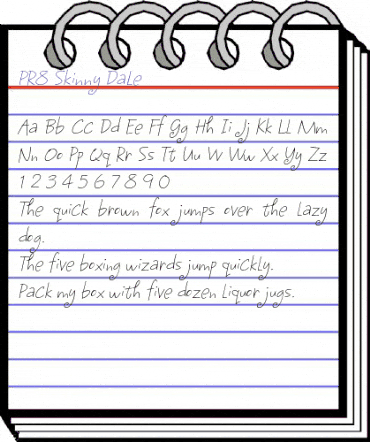 PR8 Skinny Dale
Aa Bb Cc Dd Ee Ff Gg Hh Ii Jj Kk Ll Mm
Nn Oo Pp Qq Rr Ss Tt Uu Vv Ww Xx Yy Zz
1 2 3 4 5 6 7 8 9 0
The quick brown fox jumps over the lazy
dog.
The five boxing wizards jump quickly.
Pack my box with five dozen liquor jugs.